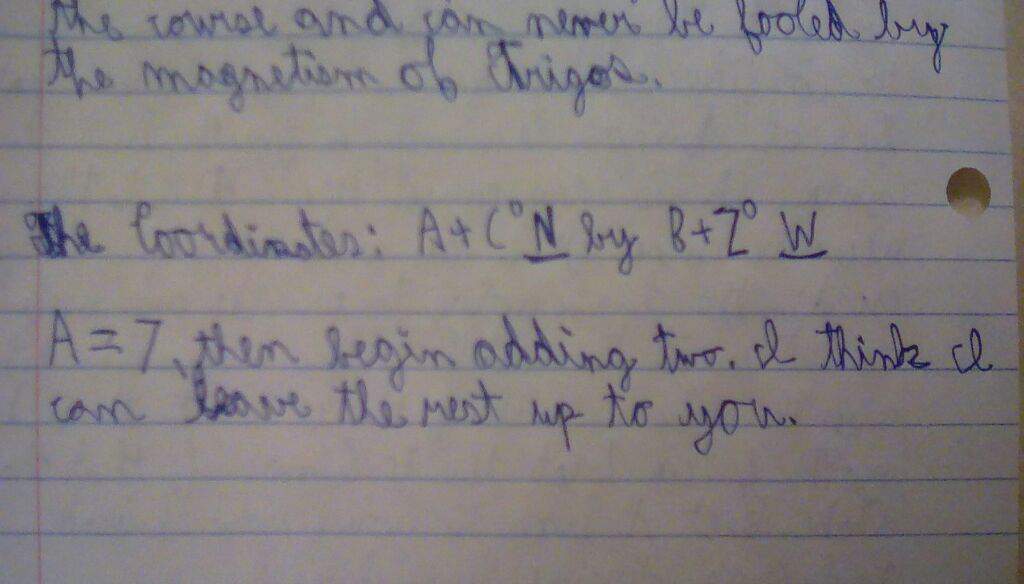 the course and can never be fooled by
the magnetism of Frigos.
The Coordinates: A+C° N by B+Z° W
A=7, then begin adding two. I think I
can leave the rest up to you.